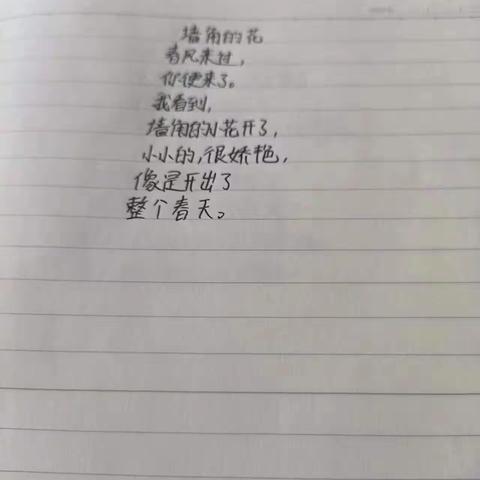 墙角的花
春风来过，
你便来了。
我看到，
墙角的小花开了，
小小的，很娇艳，
像是开出了
整个春天。